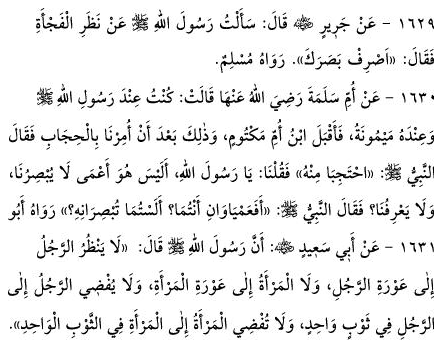 ١٦٢٩ - عَنْ جَرِيرٍ ﷺ قَالَ: سَأَلْتُ رَسُولَ اللهِ ﷺ عَنْ نَظَرِ الْفَجْأَةِ
فَقَالَ: «اصْرِفْ بَصَرَكَ». رَوَاهُ مُسْلِمٌ.
١٦٣٠ - عَنْ أُمِّ سَلَمَةَ رَضِيَ اللهُ عَنْهَا قَالَتْ: كُنْتُ عِنْدَ رَسُولِ اللهِ ﷺ
وَعِنْدَهُ مَيْمُونَةُ، فَأَقْبَلَ ابْنُ أُمِّ مَكْتُومٍ، وَذٰلِكَ بَعْدَ أَنْ أُمِرْنَا بِالْحِجَابِ فَقَالَ
النَّبِيُّ ﷺ: «احْتَجِبَا مِنْهُ» فَقُلْنَا: يَا رَسُولَ اللهِ، أَلَيْسَ هُوَ أَعْمَى لَا يُبْصِرُنَا،
وَلَا يَعْرِفُنَا؟ فَقَالَ النَّبِيُّ ﷺ: «أَفَعَمْيَاوَانِ أَنْتُمَا؟ أَلَسْتُمَا تُبْصِرَانِهِ؟» رَوَاهُ أَبُو
١٦٣١ - عَنْ أَبِي سَعِيدٍ ﷺ: أَنَّ رَسُولَ اللهِ ﷺ قَالَ: «لَا يَنْظُرُ الرَّجُلُ
إِلَى عَوْرَةِ الرَّجُلِ، وَلَا الْمَرْأَةُ إِلَى عَوْرَةِ الْمَرْأَةِ، وَلَا يُفْضِي الرَّجُلُ إِلَى
الرَّجُلِ فِي ثَوْبٍ وَاحِدٍ، وَلَا تُفْضِي الْمَرْأَةُ إِلَى الْمَرْأَةِ فِي الثَّوْبِ الْوَاحِدِ».